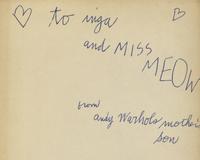 to inga
and MISS
MEOW
from
andy Warhols mother
son